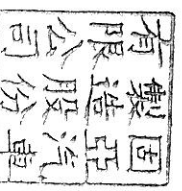 固亞汽車
製造股份
有限公司